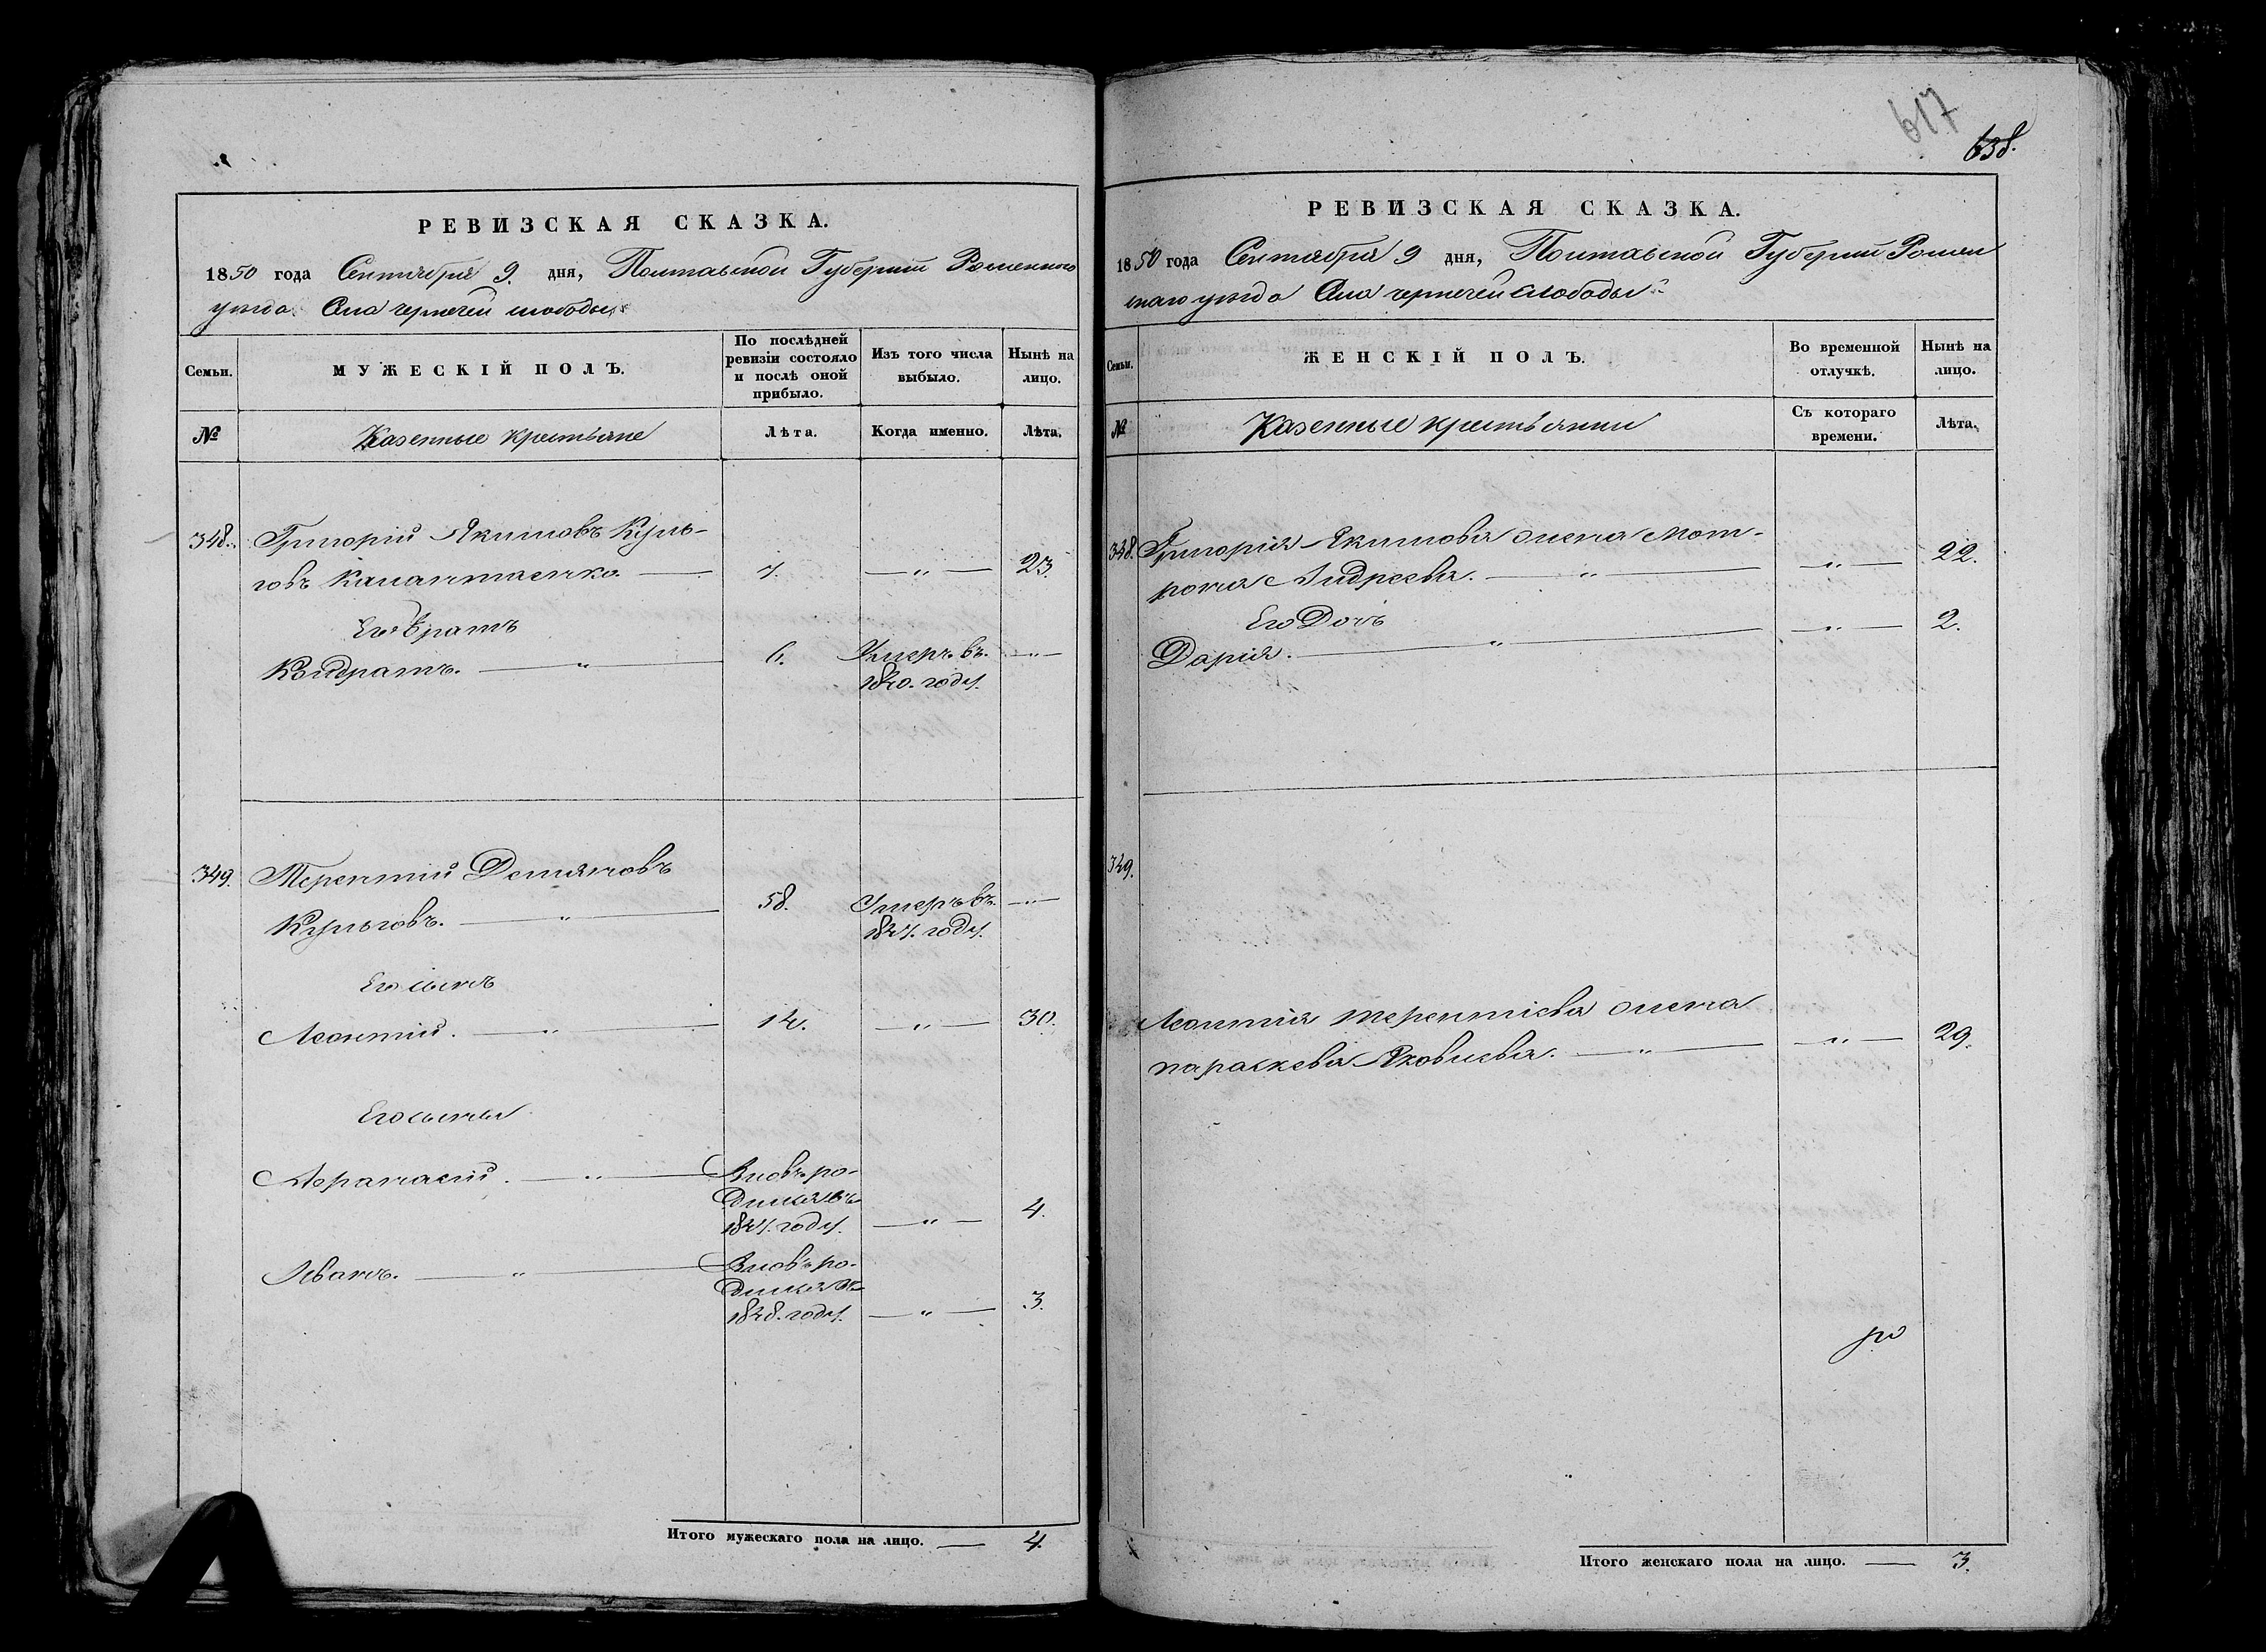 617
638.
РЕВИЗСКАЯ СКАЗКА.
1850 года Сентября 9. дня, Полтавской Губернiи Роменского
уезда Села чернечей слободы
Семьи.
МУЖЕСКІЙ ПОЛЪ.
По послѣдней
ревизіи состояло
и послѣ оной
прибыло.
Изъ того числа
выбыло.
Нынѣ на
лицо.
№
Казенные крестьяне
Лѣта.
Когда именно.
Лѣта.
348.
Григорій Якимовъ Куль-
говъ
7. — " — 23.
Его братъ
Кондратъ. — " —
6. Умеръ въ. — " —
1840. году.
349.
Терентій Демяновъ
58. Умеръ въ. — " —
Кульговъ. — " —
1847. году.
Его сынъ
Леонтій. — " — 14. — " — 30.
Его сыны
Афанасій. — " — Вновь ро-
дился въ
1847. году. — " — 4.
Иванъ. — " — Вновь ро-
дился въ
1848. году. — " — 3.
Итого мужескаго пола на лицо. — 4.
РЕВИЗСКАЯ СКАЗКА.
1850 года Сентября 9 дня, Полтавской Губерніи Ромен
скаго уезда Села чернечей Слободы
Семьи.
ЖЕНСКІЙ ПОЛЪ.
Во временной
отлучкѣ.
Нынѣ на
лицо.
№
Казенные крестьянки
Съ котораго
времени.
Лѣта.
348.
Григорія Якимова жена Мот-
рона Андреева. — " — — " — 22.
Его Дочь
Дарія. — " — — " — 2.
349.
Леонтія терентіева жена
параскева Яковлева. — " — — " — 29.
Итого женскаго пола на лицо. — 3.